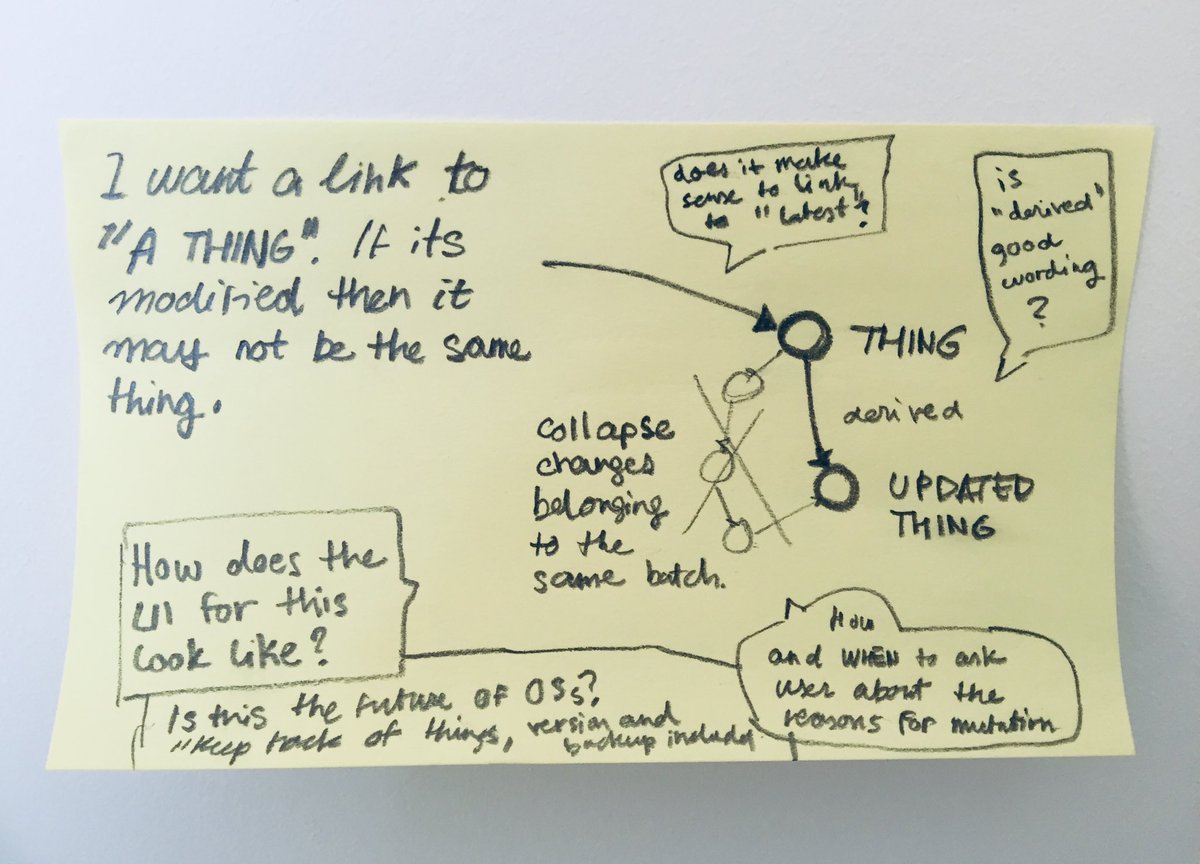 I want a link to
"A THING". If its
modified then it
may not be the same
thing.
does it make
sense to link
to "latest"?
is
"derived"
good
wording
?
THING
derived
UPDATED
THING
collapse
changes
belonging
to the
same batch.
How does the
UI for this
look like?
How
and WHEN to ask
user about the
reasons for mutation
Is this the future of OSs?
"Keep track of things, version and
backup included